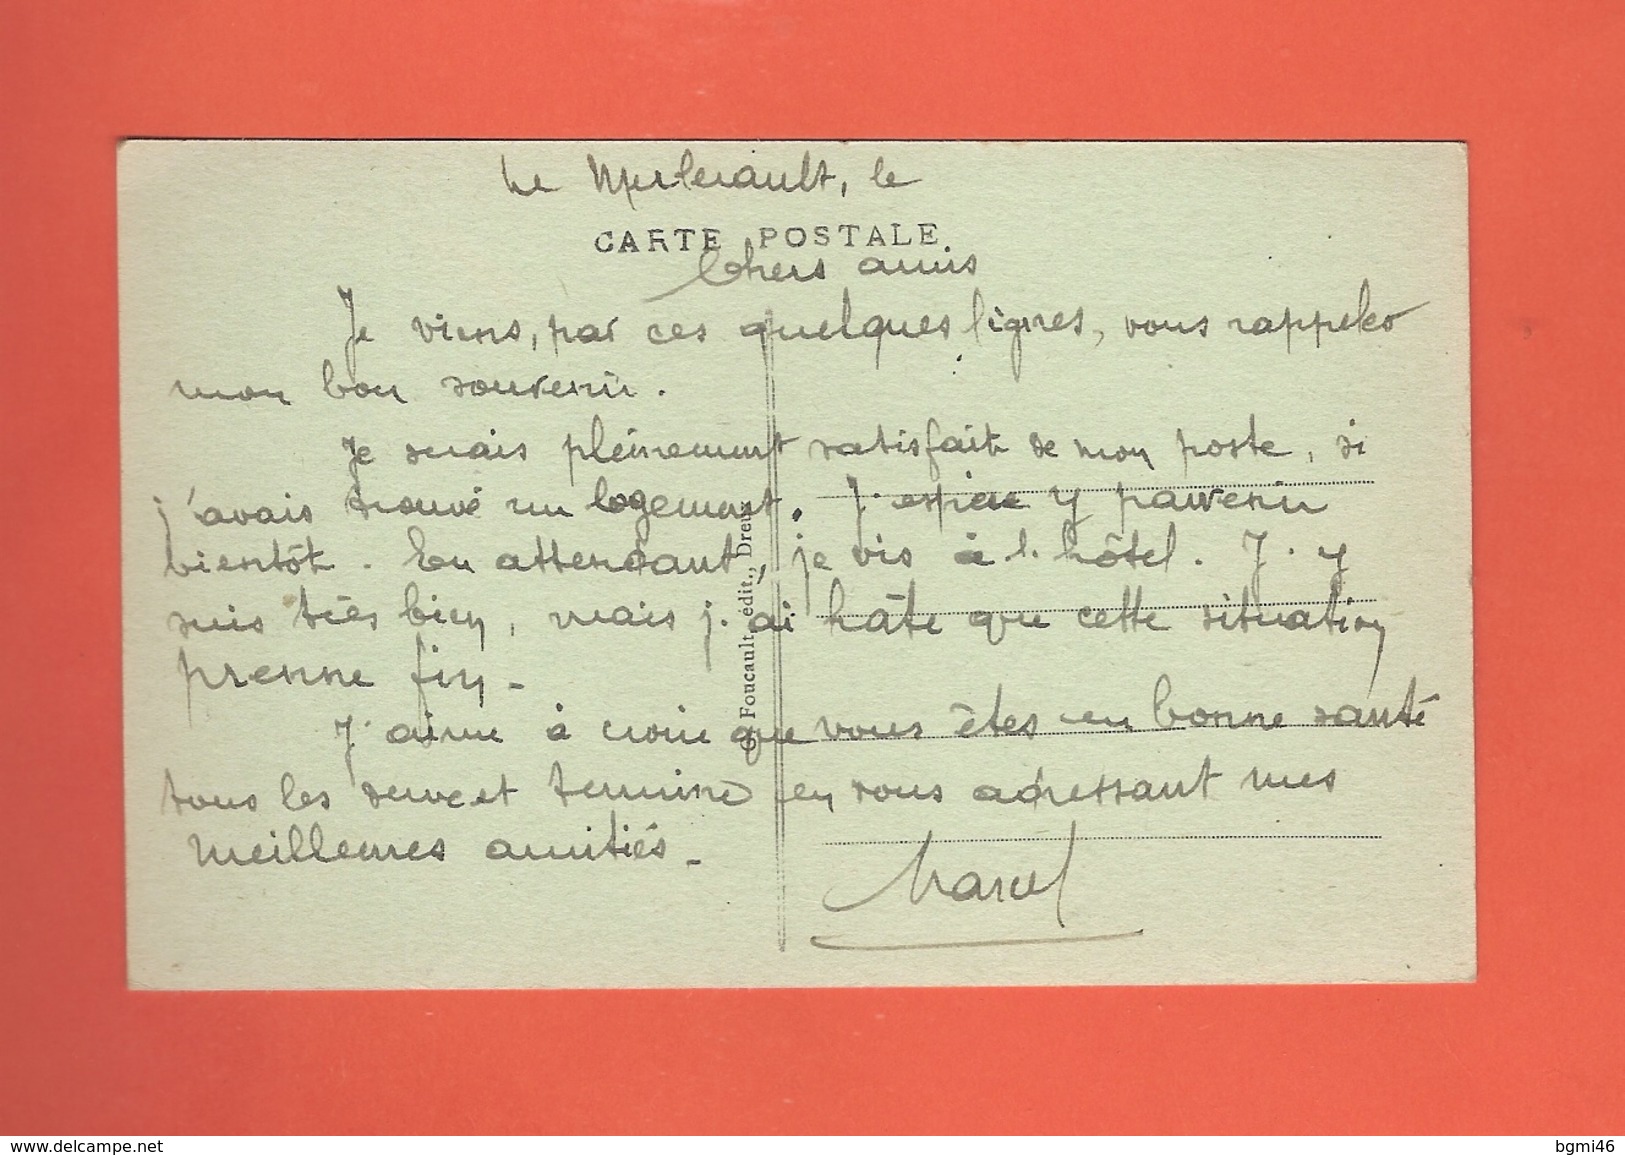 Le Merlerault, le
CARTE POSTALE
Chers amis
Je viens, par ces quelques lignes, vous rappeler
mon bon souvenir.
Je serais pleinement satisfait de mon poste, si
j'avais trouvé un logement. J'espère y parvenir
bientôt. En attendant, je vis à l'hôtel. J'y
suis très bien, mais j'ai hâte que cette situation
prenne fin.
J'aime à croire que vous êtes en bonne santé
tous les deux et termine en vous adressant mes
meilleures amitiés.
Marcel
Foucault édit., Dreux
www.delcampe.net
bgmi46